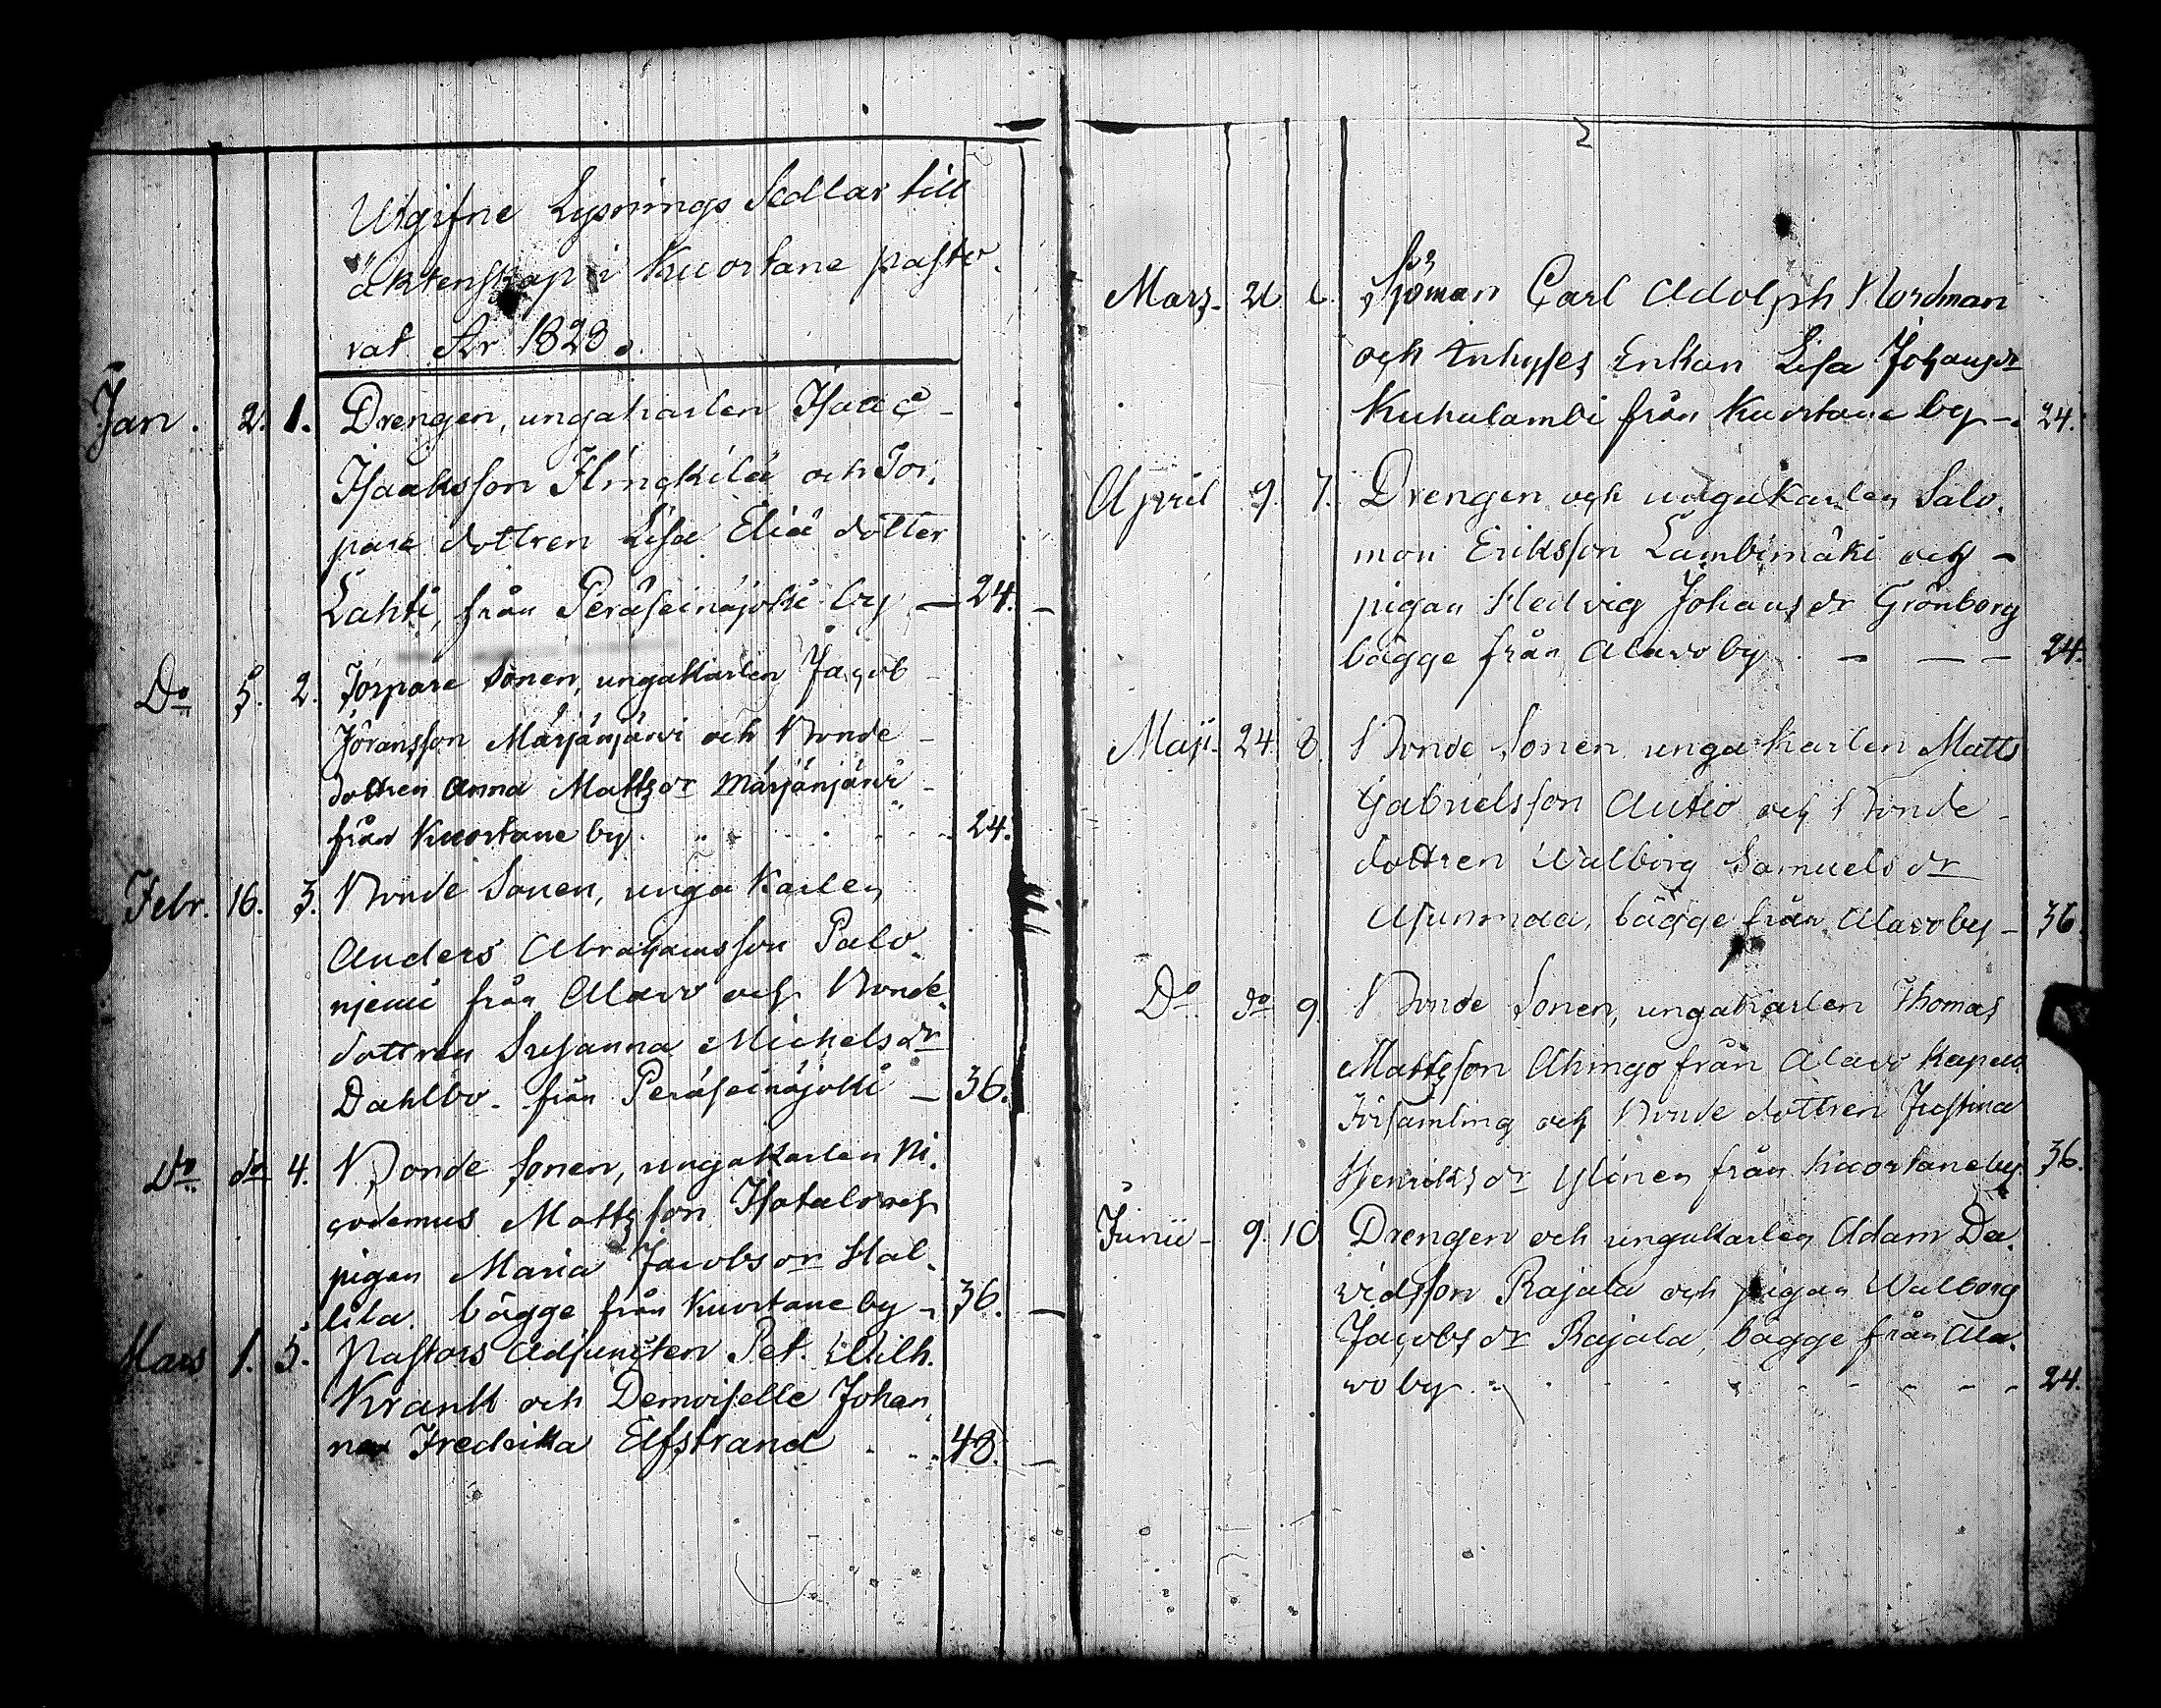 Utgifne Lysnings Sedlar till
äktenskap i Kuortane pasto-
rat År 1828.
Jan. 2. 1. Drengen, ungakarlen Isaac
Isaaksson Hingkilä och Tor-
pare dottren Lisa Eliä dotter
Lahti, från Peräseinäjoki by — 24. —
Do 5. 2. Torpare Sonen, ungakarlen Jacob
Jöransson Märjänjärvi och Bonde
dottren Anna Mattsdr Märjänjärvi
från Kuortane by. 24.
Febr. 16. 3. Bonde Sonen, unga Karlen
Anders Abrahamsson Palo-
njemi från Alavo och Bonde-
dottren Susanna Michelsdr
Dahlbo - från Peräseinäjoki — 36.
Do do 4. Bonde sonen, ungakarlen Ni-
codemus Mattsson Isotalo och
pigan Maria Jacobsdr Hal-
lila. bägge från Kuortane by - 36. —
Mars 1. 5. Pastors Adjuncten Pet. Wilh.
Krank och Demoiselle Johan-
na Fredrika Elfstrand 48. —
2
Mars - 6. Sjöman Carl Adolph Nordman
och Inhyses Enkan Lisa Johansdr
Kuhalambi från Kuortane by - 24.
April 9. 7. Drengen och ungakarlen Salo-
mon Eriksson Lambimäki och -
pigan Hedvig Johansdr Grönborg
bägge från Alavo by. — — — 24.
Maji - 24. 8. Bonde Sonen ungakarlen Matts
Gabrielsson Autio och Bonde -
dottren Walborg Samuelsdr
Asunmaa, bägge från Alavo by - 36.
Do do 9. Bonde Sonen, ungakarlen Thomas
Mattsson Ahingo från Alavo Kapell
Församling och Bonde dottren Justina
Henriksdr Ylinen från Kuortane by. 36.
Junii - 9. 10 Drengen och ungakarlen Adam Da-
vidsson Rajala och pigan Walborg
Jacobsdr Rajala, bägge från Ala-
vo by. - - - - - - - - 24.